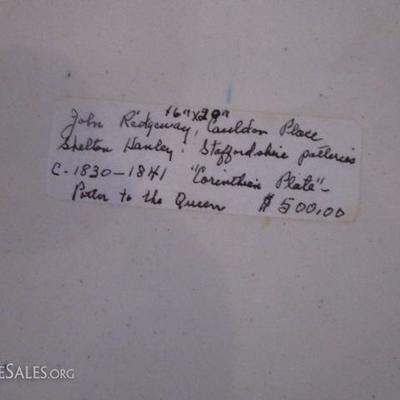 16"x20"
John Ridgeway, Cauldon Place
Shelton Hanley. Staffordshire potteries
C. 1830-1841 "Corinthian Plate"-
Potter to the Queen $500.00
ESALES.ORG